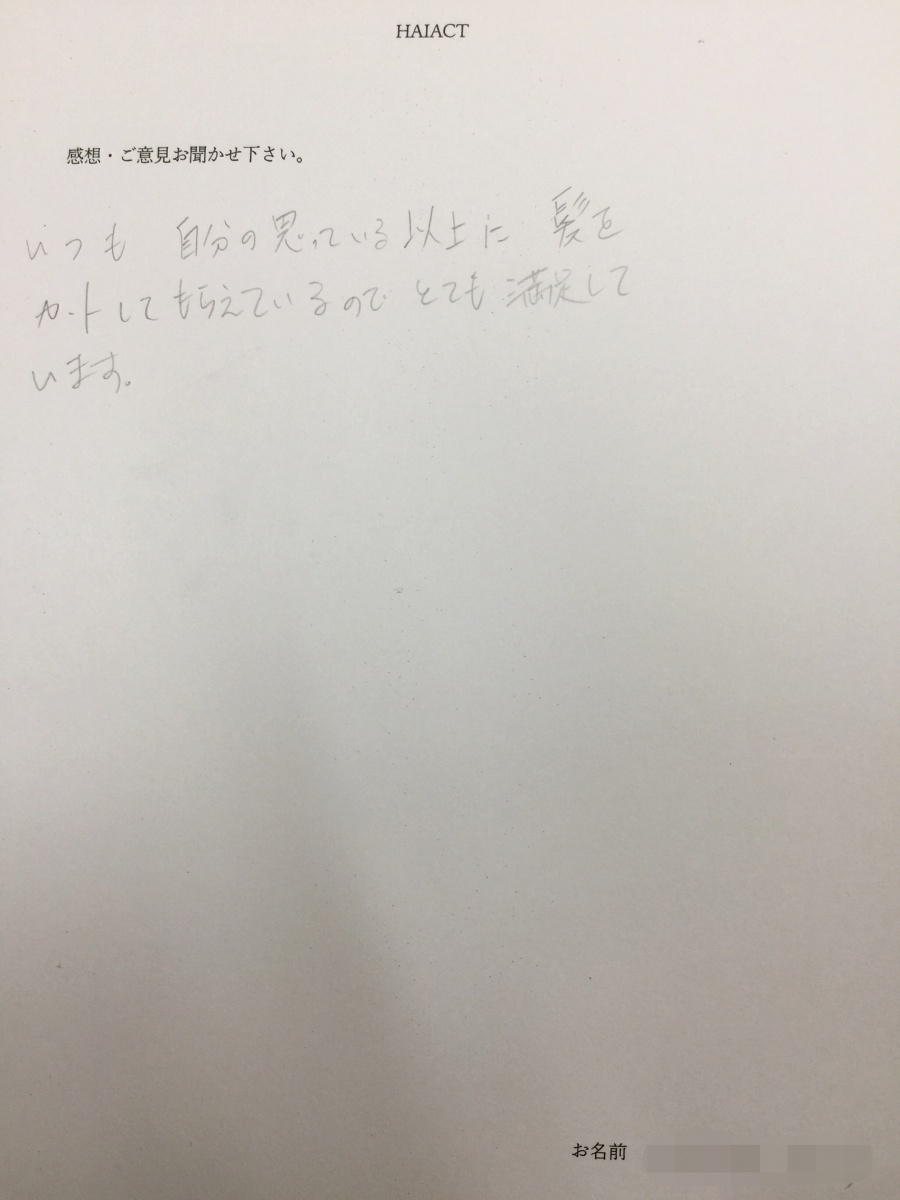 HAIACT
感想・ご意見お聞かせ下さい。
いつも 自分の思っている以上に 髪を
カットしてもらえているので とても 満足して
います。
お名前